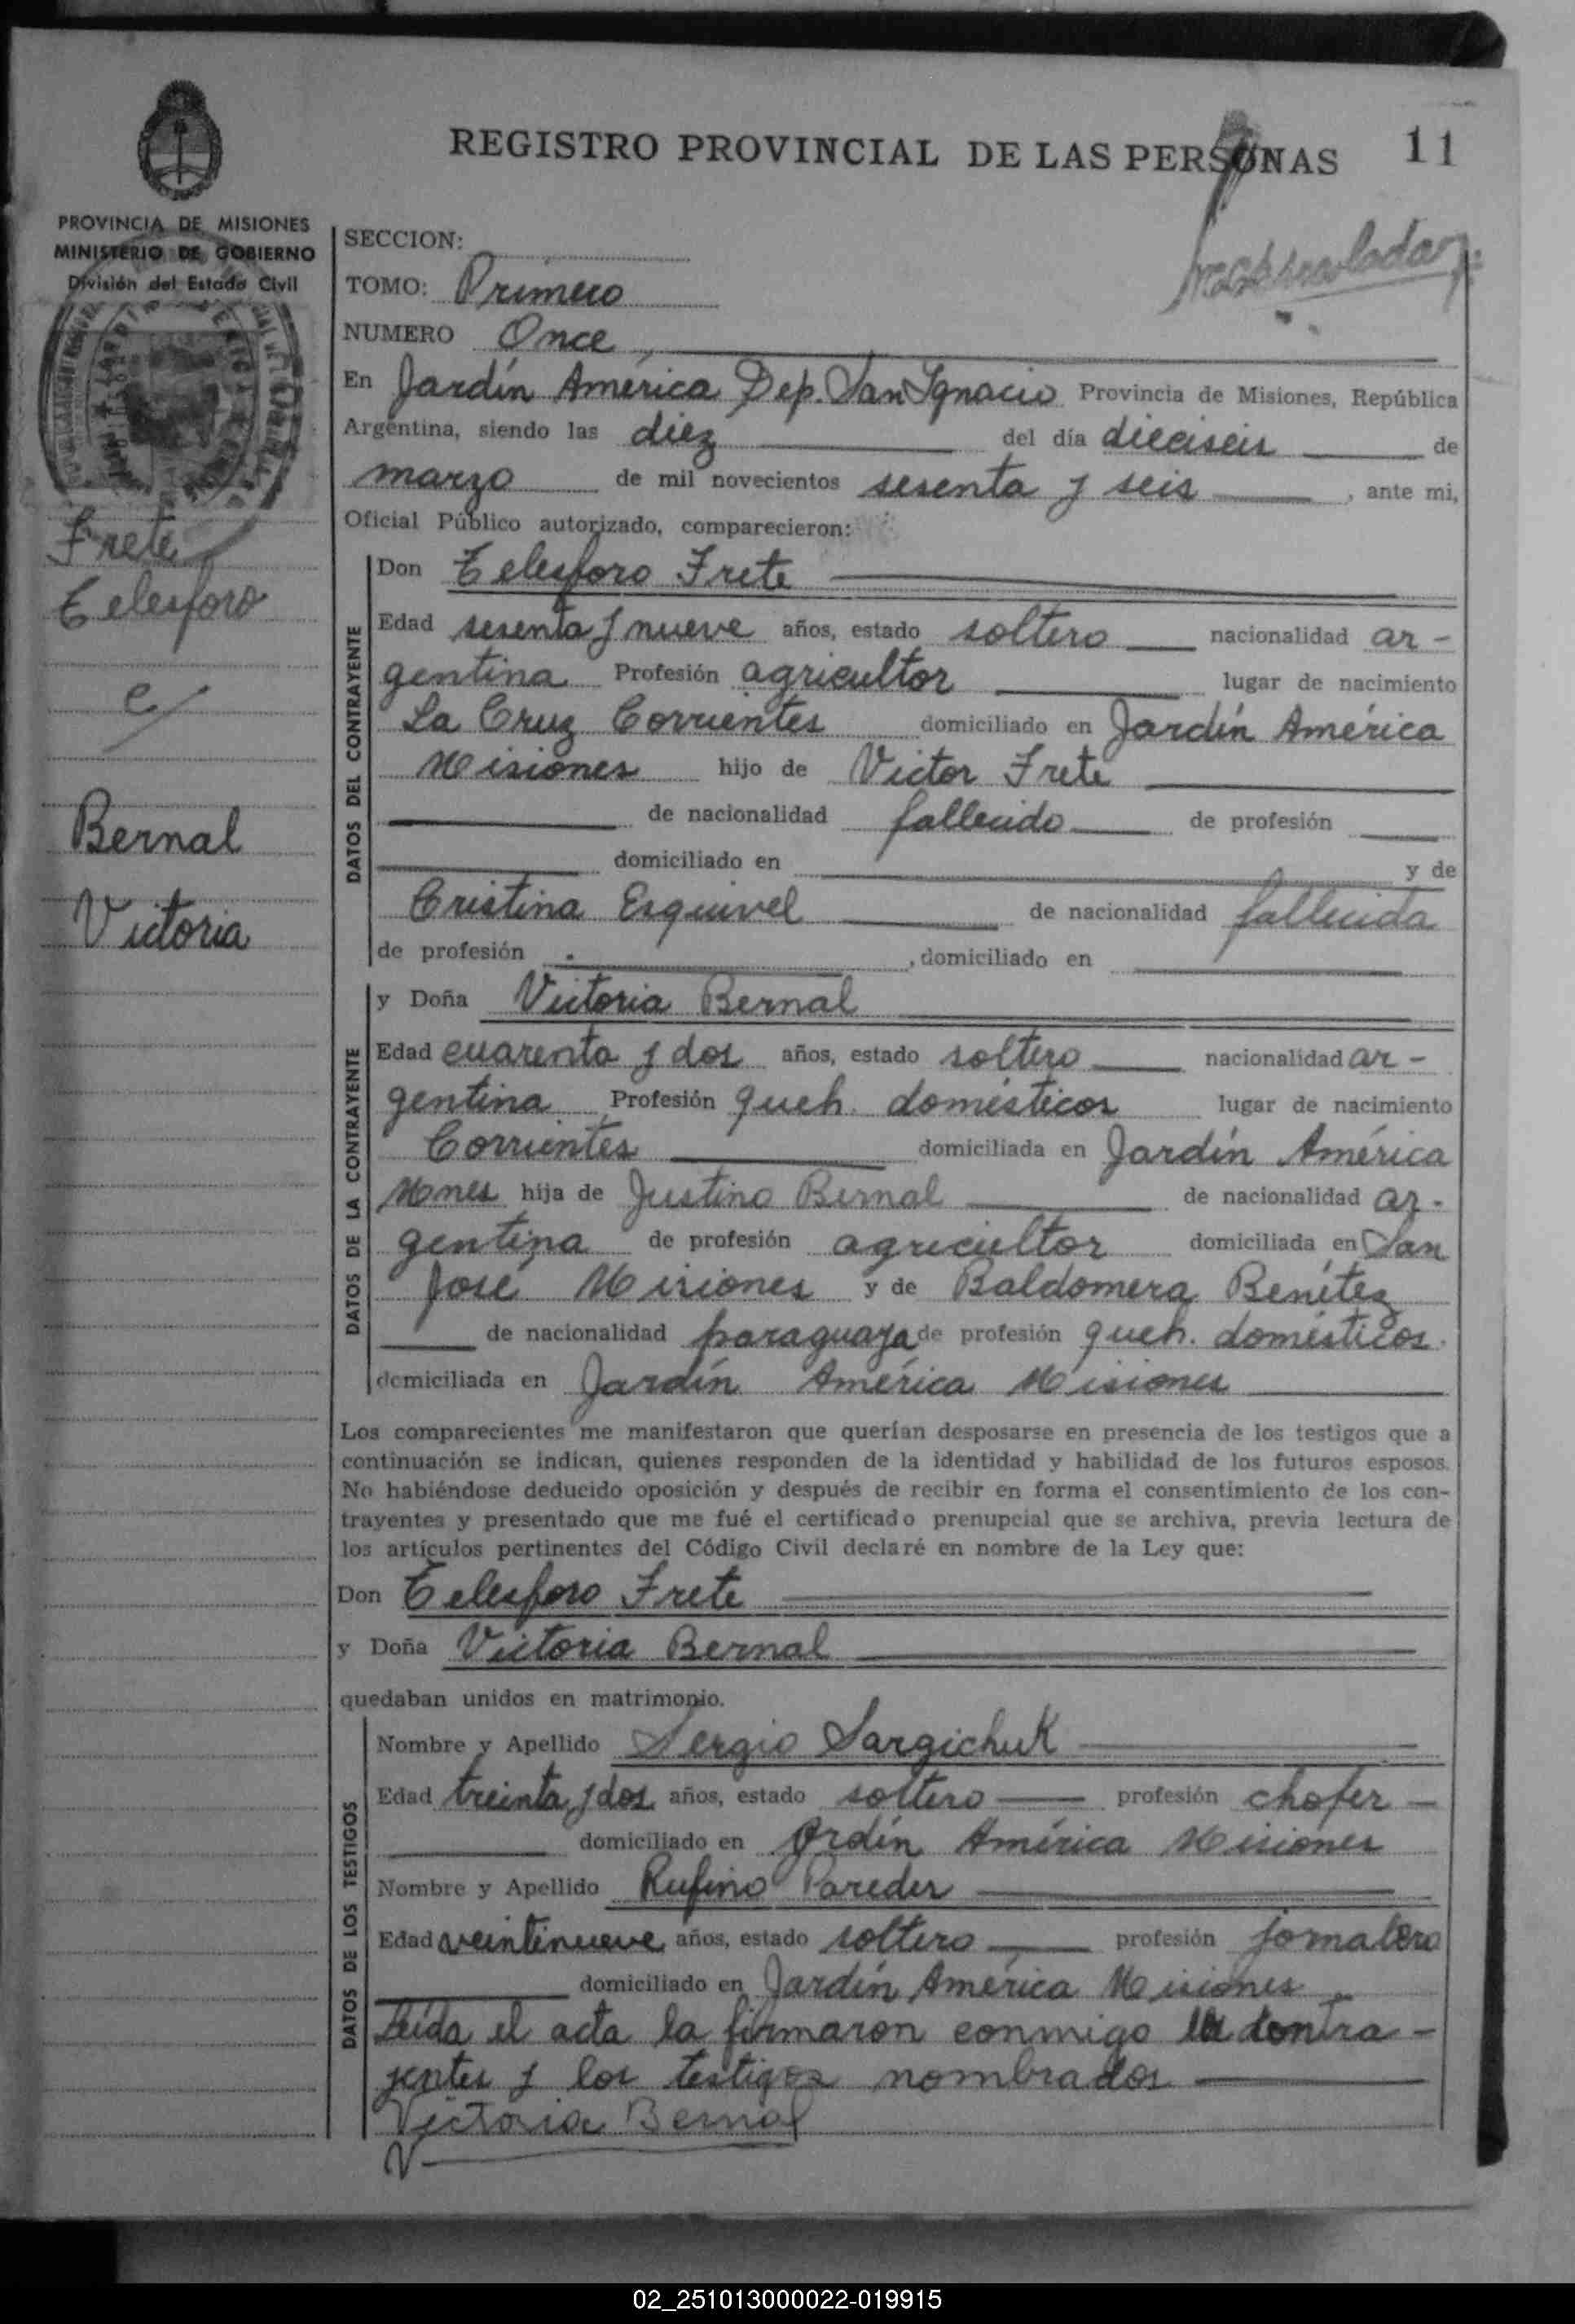 REGISTRO PROVINCIAL DE LAS PERSONAS 11
PROVINCIA DE MISIONES
MINISTERIO DE GOBIERNO
División del Estado Civil
Frete
Telesforo
c/
Bernal
Victoria
SECCION:
TOMO: Primero
NUMERO Once
En Jardín América Dep. San Ignacio Provincia de Misiones, República
Argentina, siendo las diez del día dieciseis de
marzo de mil novecientos sesenta y seis, ante mi,
Oficial Público autorizado, comparecieron:
DATOS DEL CONTRAYENTE
Don Telesforo Frete
Edad sesenta y nueve años, estado soltero nacionalidad ar-
gentina Profesión agricultor lugar de nacimiento
La Cruz Corrientes domiciliado en Jardín América
Misiones hijo de Victor Frete
de nacionalidad fallecido de profesión
domiciliado en y de
Cristina Esquivel de nacionalidad fallecida
de profesión , domiciliado en
DATOS DE LA CONTRAYENTE
y Doña Victoria Bernal
Edad cuarenta y dos años, estado soltero nacionalidad ar-
gentina Profesión queh. domésticos lugar de nacimiento
Corrientes domiciliada en Jardín América
Mnes hija de Justino Bernal de nacionalidad ar-
gentina de profesión agricultor domiciliada en San
José Misiones y de Baldomera Benítez
de nacionalidad paraguaya de profesión queh. domésticos.
domiciliada en Jardín América Misiones
Los comparecientes me manifestaron que querían desposarse en presencia de los testigos que a
continuación se indican, quienes responden de la identidad y habilidad de los futuros esposos.
No habiéndose deducido oposición y después de recibir en forma el consentimiento de los con-
trayentes y presentado que me fué el certificado prenupcial que se archiva, previa lectura de
los artículos pertinentes del Código Civil declaré en nombre de la Ley que:
Don Telesforo Frete
y Doña Victoria Bernal
quedaban unidos en matrimonio.
DATOS DE LOS TESTIGOS
Nombre y Apellido Sergio Sargichuk
Edad treinta y dos años, estado soltero profesión chofer
domiciliado en Jrdín América Misiones
Nombre y Apellido Rufino Paredes
Edad veintinueve años, estado soltero profesión jornalero
domiciliado en Jardín América Misiones
Leída el acta la firmaron conmigo contra-
yentes y los testigos nombrados
Victoria Bernal
02_251013000022-019915